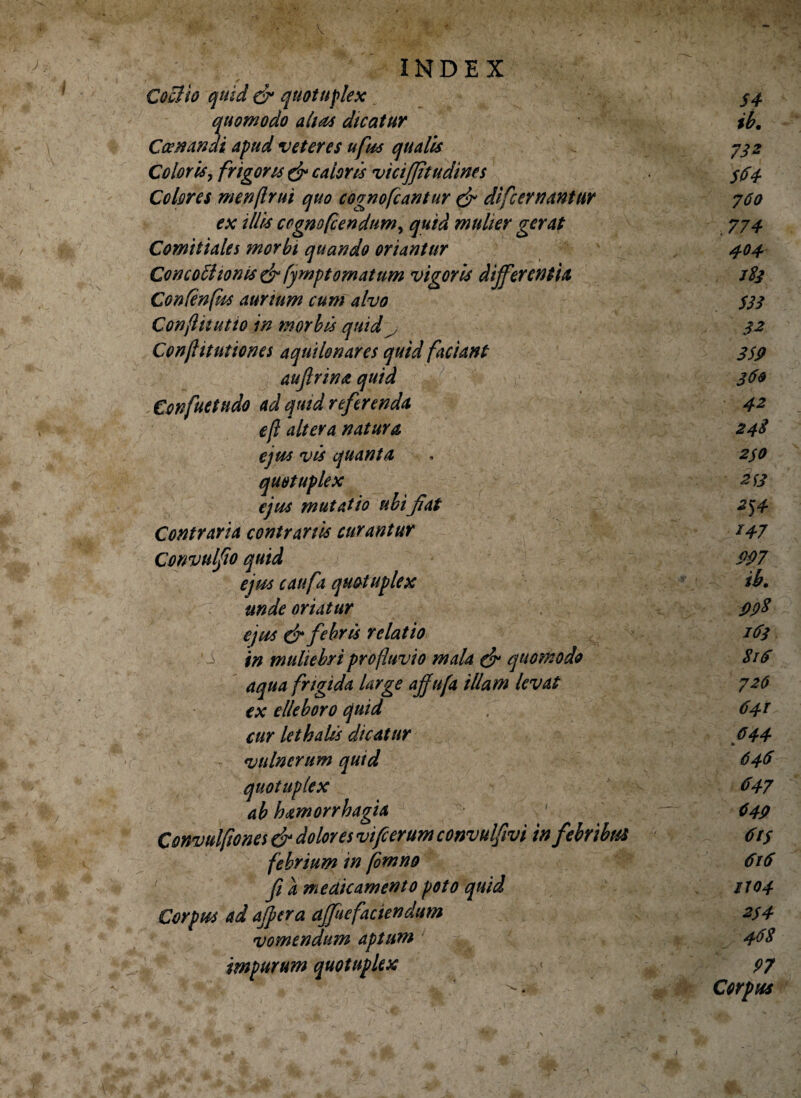 INDEX
Coctio quid & quotuplex 54
quomodo alias dicatur ib.
Cœnandi apud veteres usus qualis 732
Coloris, frigoris & caloris vicissitudines 564
Colores menstrui quo cognoscantur & discernantur 760
ex illis cognoscendum, quid mulier gerat 774
Comitiales morbi quando oriantur 404
Concoctionis & symptomatum vigoris differentia 183
Consensus aurium cum alvo 533
Constitutio in morbis quid, 32
Constitutiones aquilonares quid faciant 359
austrinæ quid 360
Consuetudo ad quid referenda 42
est altera natura 248
ejus vis quanta 250
quotuplex 253
ejus mutatio ubi fiat 254
Contraria contrariis curantur 147
Convulsio quid 997
ejus causa quotuplex ib.
unde oriatur 998
ejus & febris relatio 163
in muliebri profluvio mala & quomodo 816
aqua frigida large affusa illam levat 726
ex elleboro quid 641
cur lethalis dicatur 644
vulnerum quid 646
quotuplex 647
ab hæmorrhagia 649
Convulsiones & dolores viscerum convulsivi in febribus 615
febrium in somno 616
si à medicamento poto quid 1104
Corpus ad aspera assuefaciendum 254
vomendum aptum 468
impurum quotuplex 97
Corpus